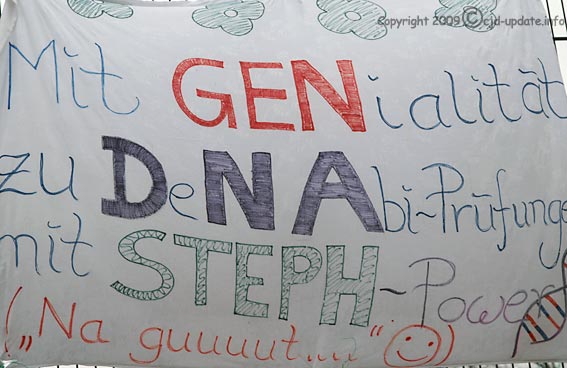 Copyright 2009 © cjd-update.info
Mit GENialität
zu DeNAbi-Prüfunge
mit STEPH-Power
(„Na guuuut..."☺)